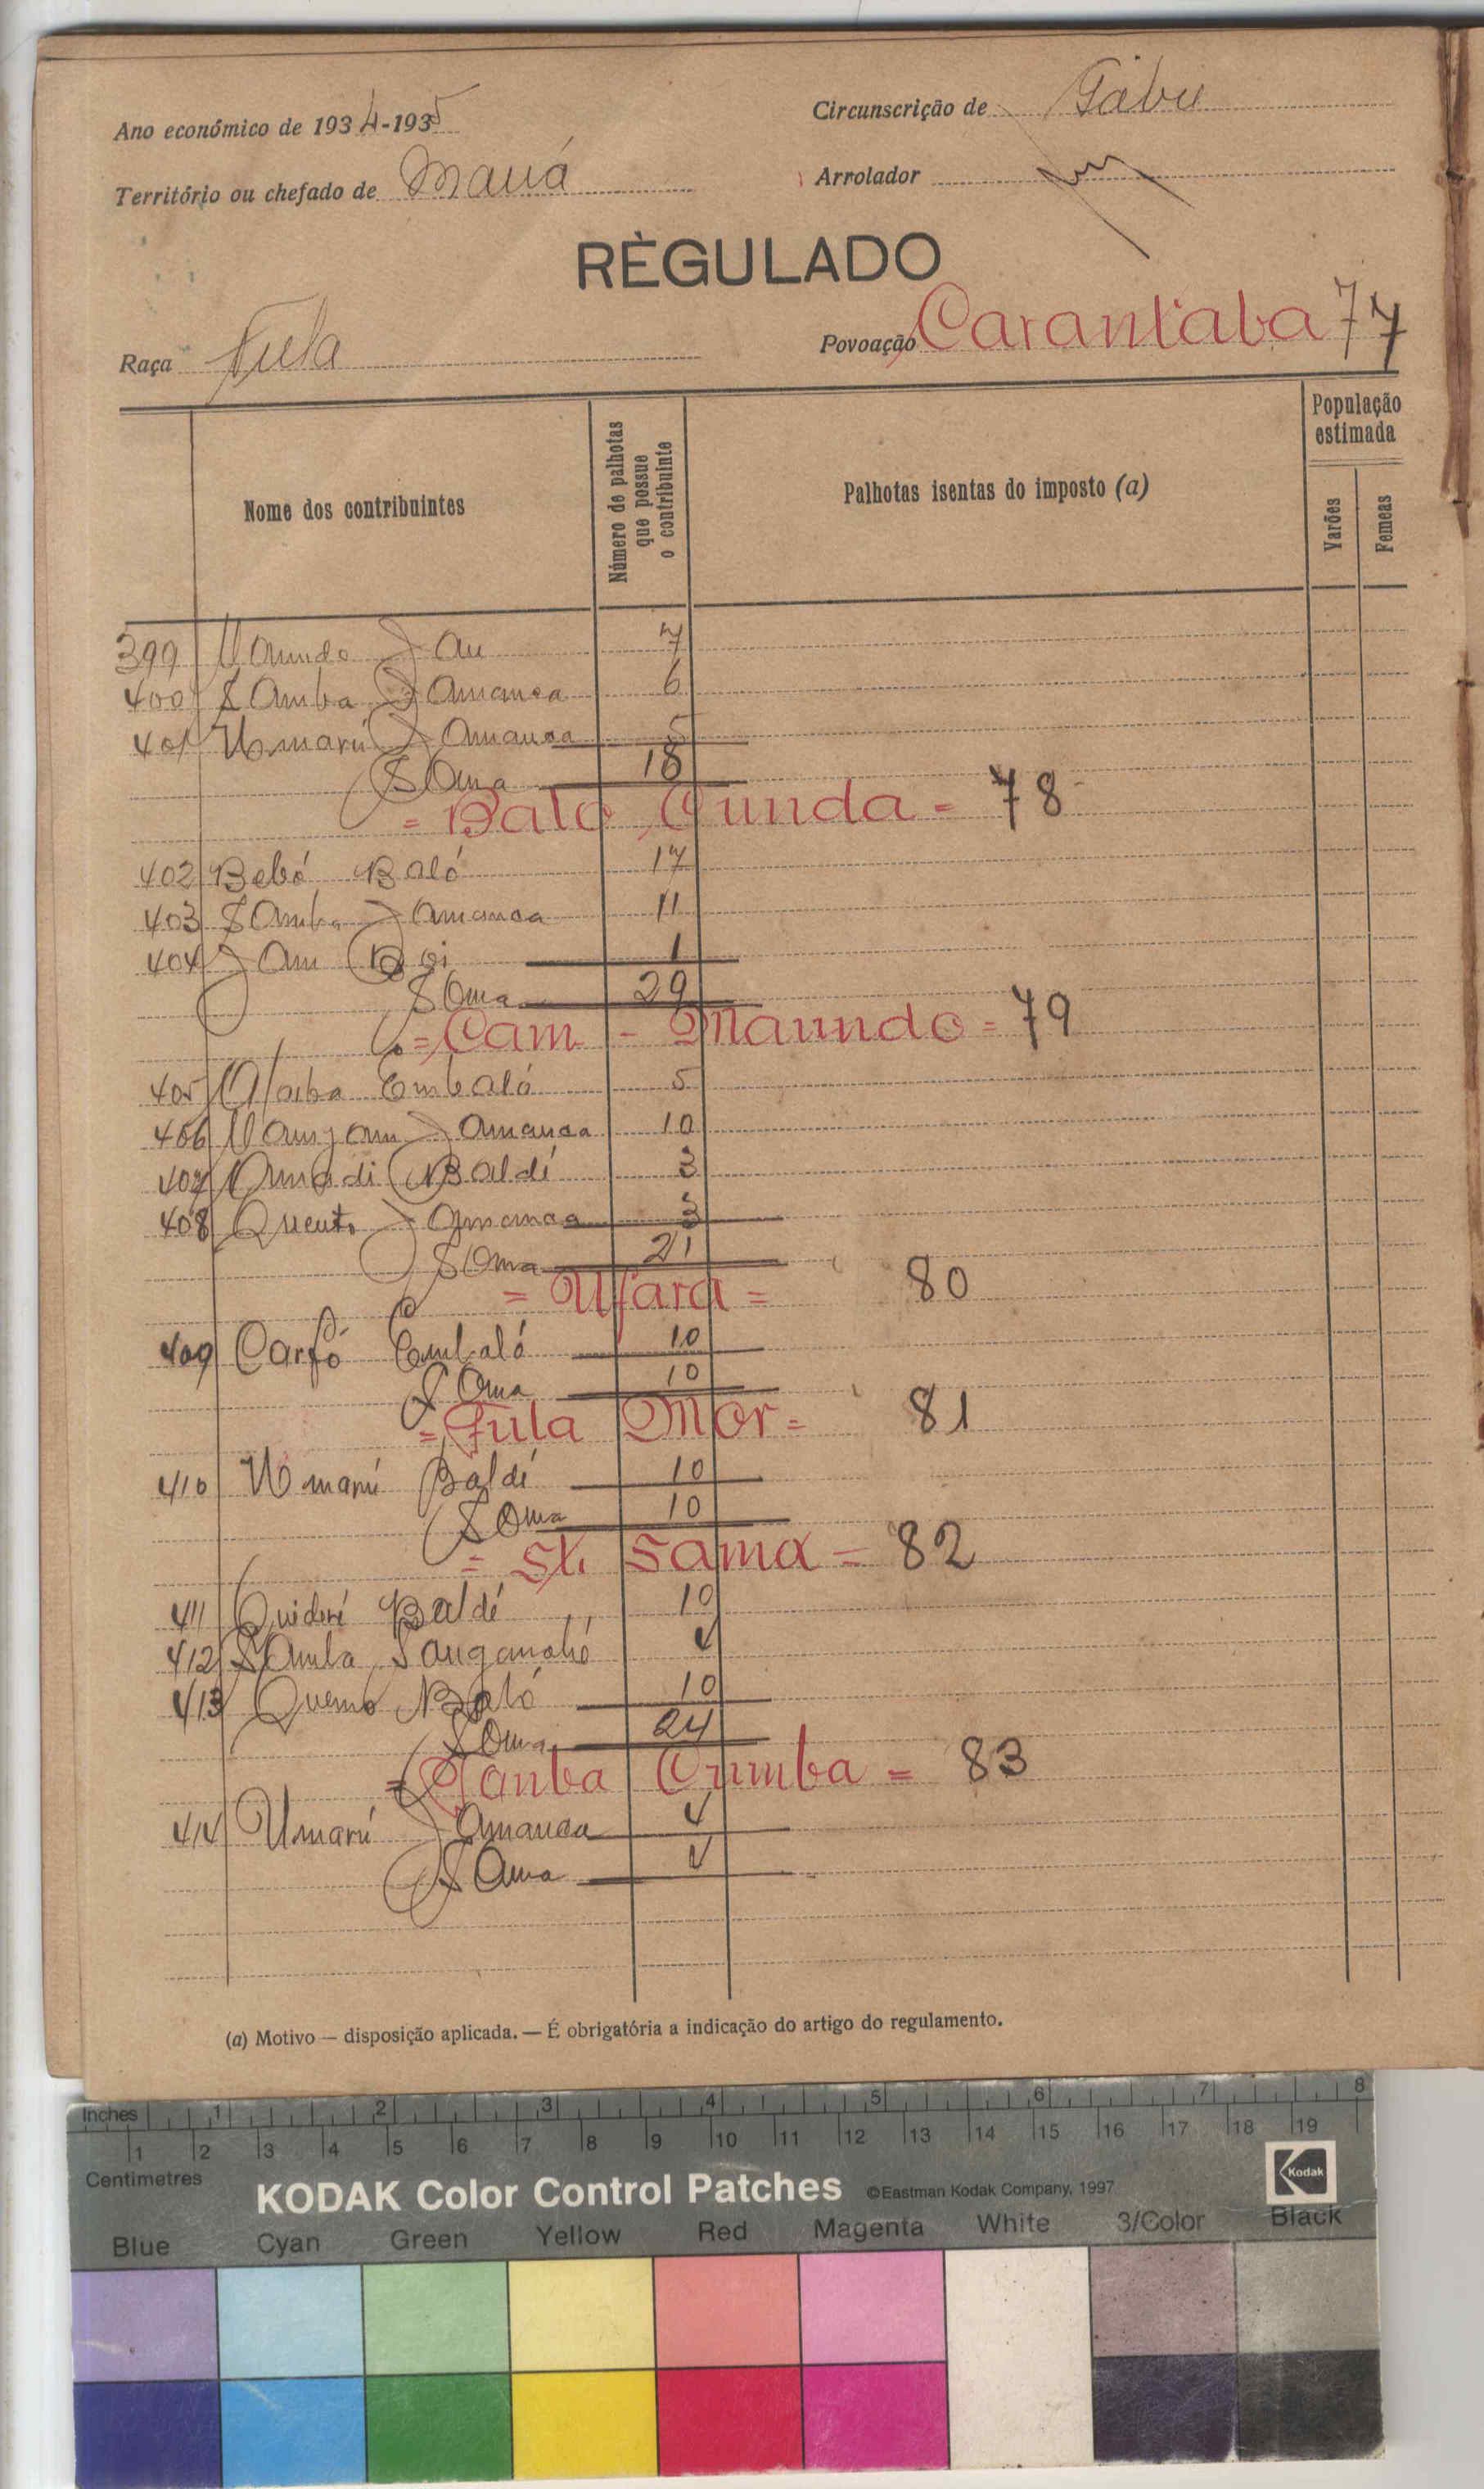 Ano económico de 1934-1935
Circunscrição de Gabu
Território ou chefado de Maná
Arrolador
RÈGULADO
Raça Fula
Povoação Carantaba 77
Nome dos contribuintes
Número de palhotas que possue o contribuinte
Palhotas isentas do imposto (a)
População estimada
Varões
Femeas
399 Mamudo Jau 7
400 Samba Jamanca 6
401 Umarú Jamanca 5
Soma 18
= Bato Cunda = 78
402 Bebó Baló 17
403 Samba Jamanca 11
404 Jam Boi 1
Soma 29
= Cam - Maundo = 79
405 Embaló 5
406 Jamanca 10
407 Amadi Baldé 3
408 Queuto Jamanca 3
Soma 21
= Ufara = 80
409 Carfó Embaló 10
Soma 10
= Fula Mor = 81
410 Umarú Baldé 10
Soma 10
= Sama = 82
411 Quideré Baldé 10
412 Samba 4
413 Quemo Baló 10
Soma 24
= Cumba = 83
414 Umarú Jamanca 4
Soma 4
(a) Motivo — disposição aplicada. — É obrigatória a indicação do artigo do regulamento.
Inches 1 2 3 4 5 6 7 8
1 2 3 4 5 6 7 8 9 10 11 12 13 14 15 16 17 18 19
Centimetres
KODAK Color Control Patches ©Eastman Kodak Company, 1997
Kodak
Blue Cyan Green Yellow Red Magenta White 3/Color Black